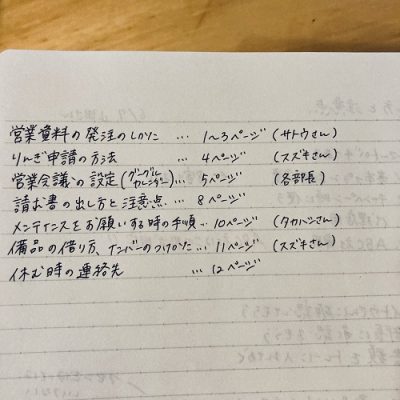 営業資料の発注のしかた … 1〜3ページ (サトウさん)
りんぎ申請の方法 … 4ページ (スズキさん)
営業会議の設定(グーグルカレンダー)… 5ページ (各部長)
請求書の出し方と注意点 … 8ページ
メンテナンスをお願いする時の手順 … 10ページ (タカハシさん)
備品の借り方、ナンバーのつけかた … 11ページ (スズキさん)
休む時の連絡先 … 12ページ